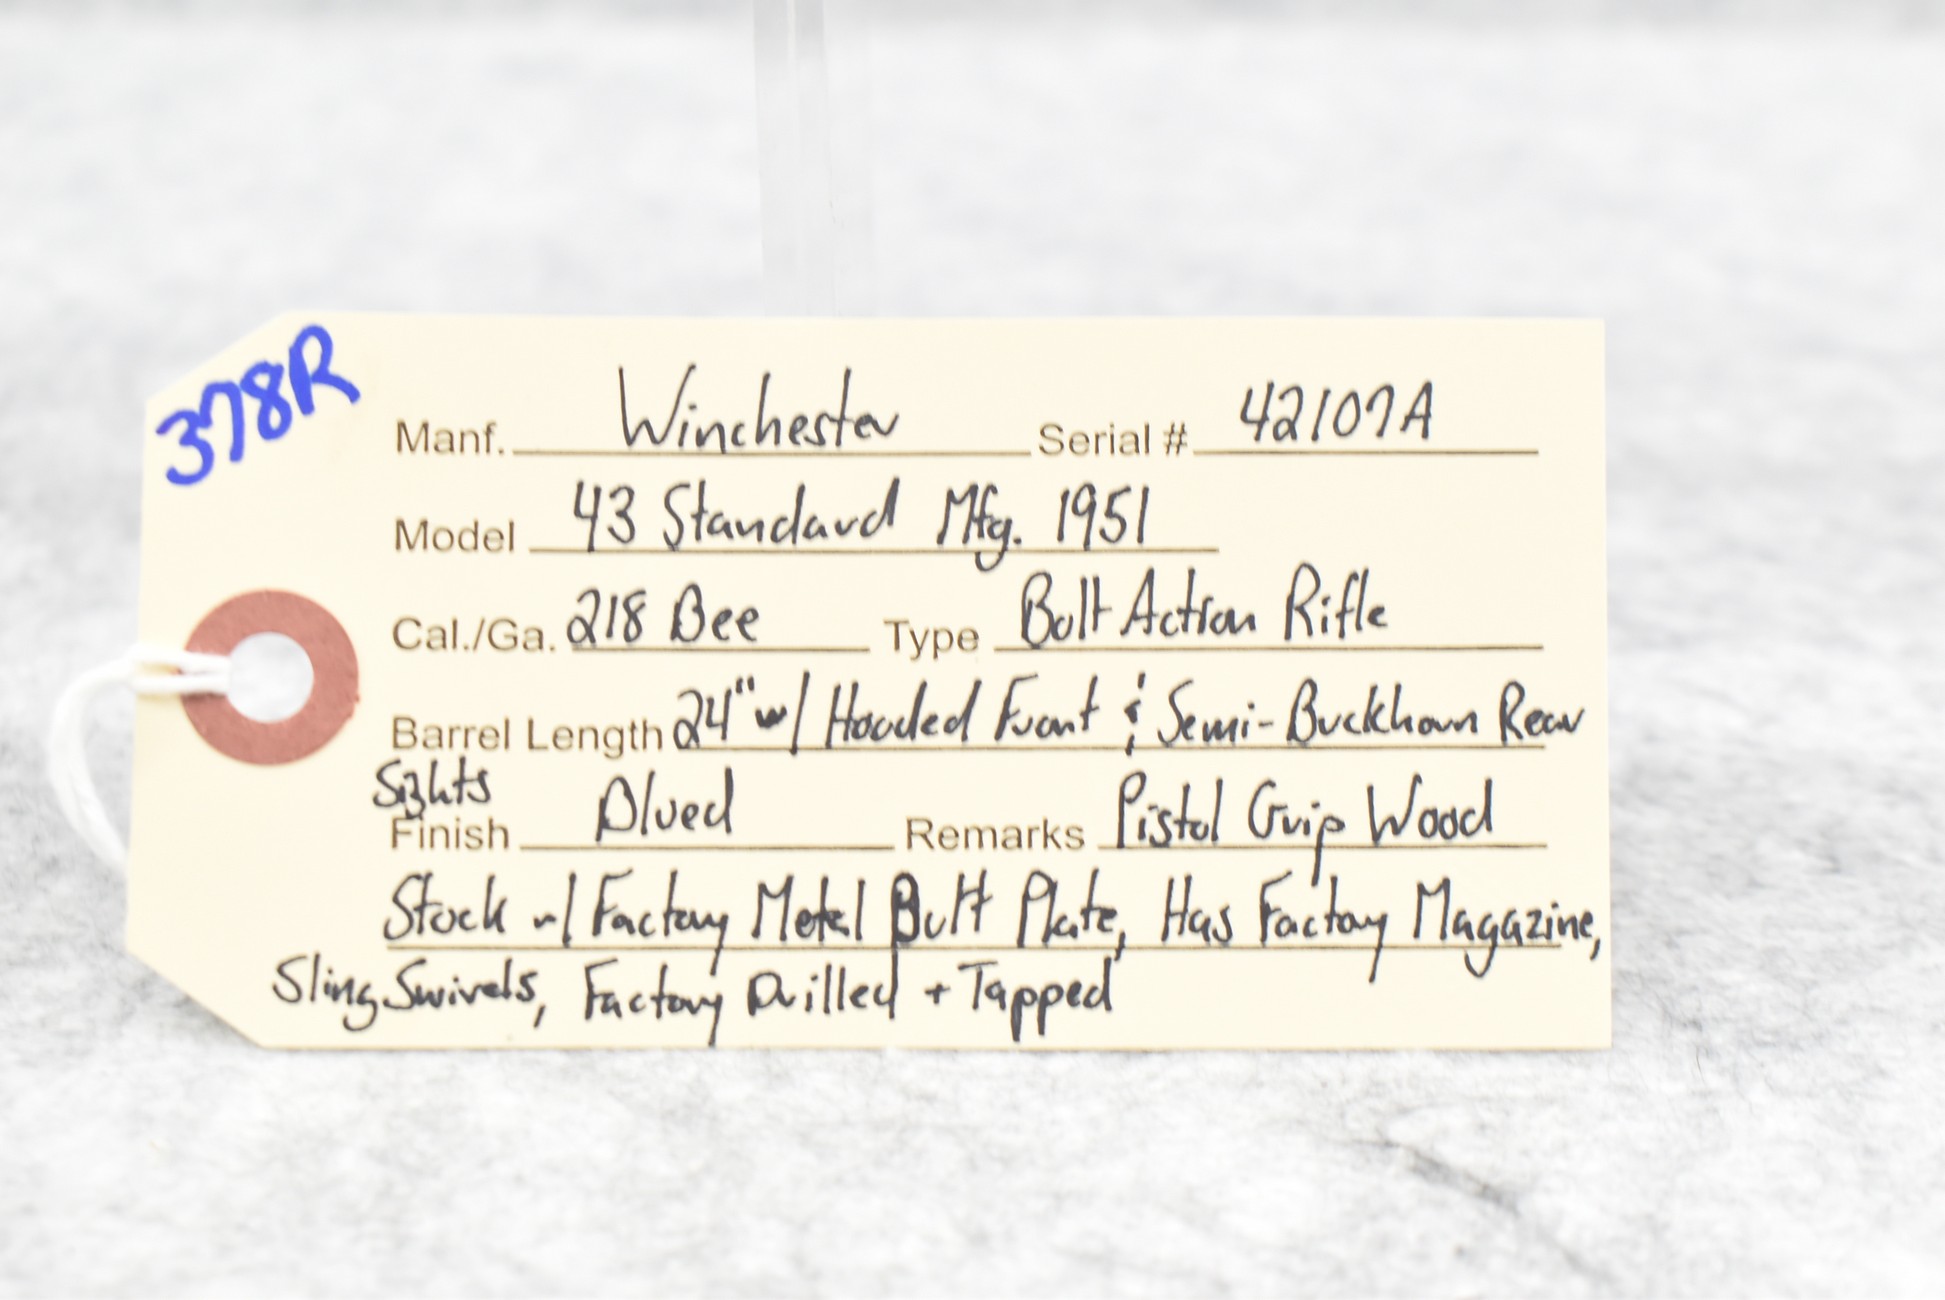 378R
Manf. Winchester Serial # 42107A
Model 43 Standard Mfg. 1951
Cal./Ga. 218 Bee Type Bolt Action Rifle
Barrel Length 24" w/ Hooded Front & Semi-Buckhorn Rear
Sights
Finish Blued Remarks Pistol Grip Wood
Stock w/ Factory Metal Butt Plate, Has Factory Magazine,
Sling Swivels, Factory Drilled + Tapped